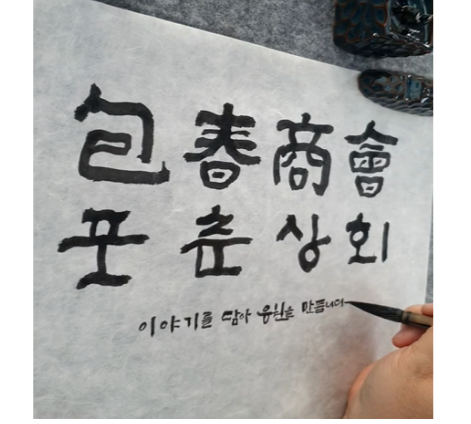 包春商會
포춘상회
이야기를 담아 응원을 만듭니다